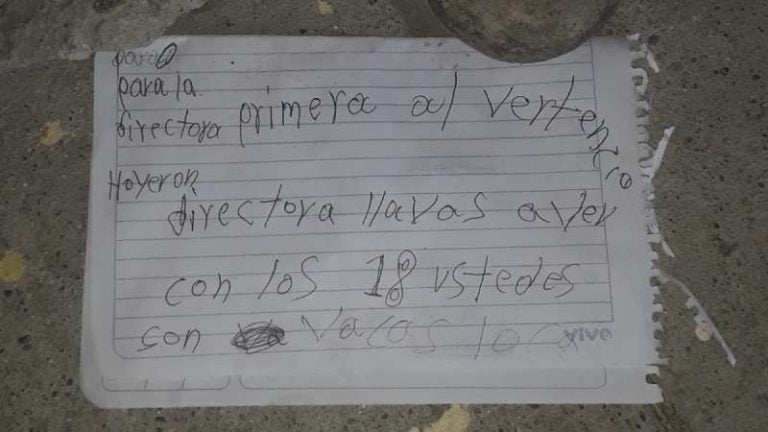 para
para la
directora primera al vertencia
Hoyeron
directora llavas aver
con los 18 ustedes
son vacas loca
vivo